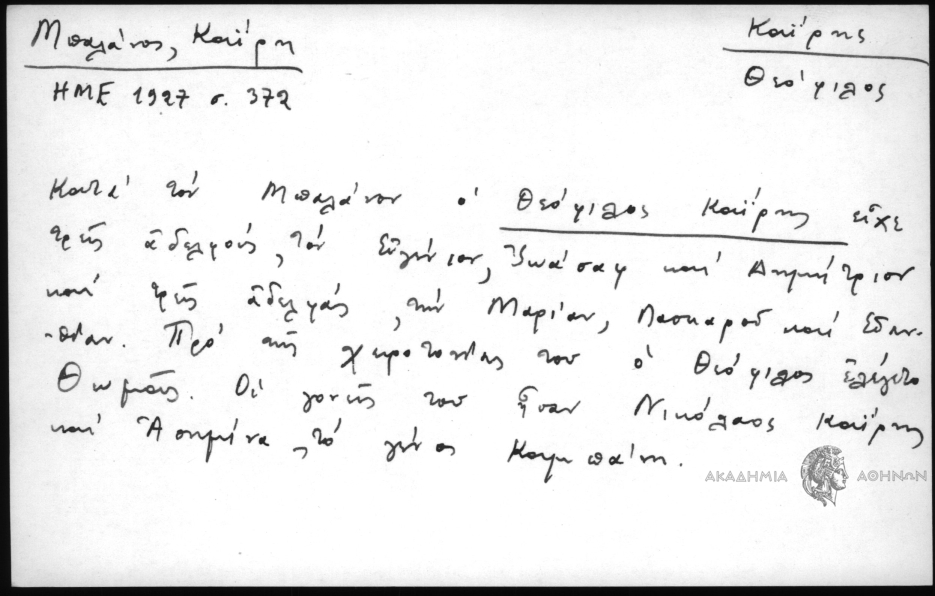 Μπαλάνος, Καΐρη
Καΐρης
ΗΜΕ 1927 σ. 372
Θεόφιλος
Κατά τόν Μπαλάνον ὁ Θεόφιλος Καΐρης εἶχε
τρεῖς ἀδελφούς, τόν Εὐγένιον, Ἰωάσαφ καί Δημήτριον
καί τρεῖς ἀδελφάς, τήν Μαρίαν, Λασκαροῦ καί Εὐαν-
-θίαν. Πρό τῆς χειροτονίας του ὁ Θεόφιλος ἐλέγετο
Θωμᾶς. Οἱ γονεῖς του ἦσαν Νικόλαος Καΐρης
καί Ἀσημίνα, τό γένος Καμπάνη.
ΑΚΑΔΗΜΙΑ ΑΘΗΝΩΝ